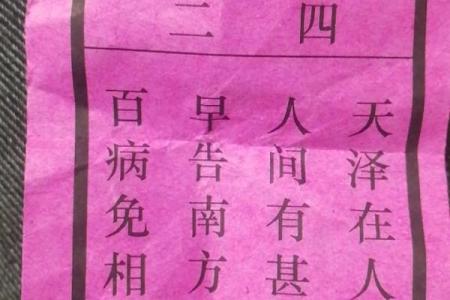 四二
天泽在人
人间有甚
早告南方
百病免相